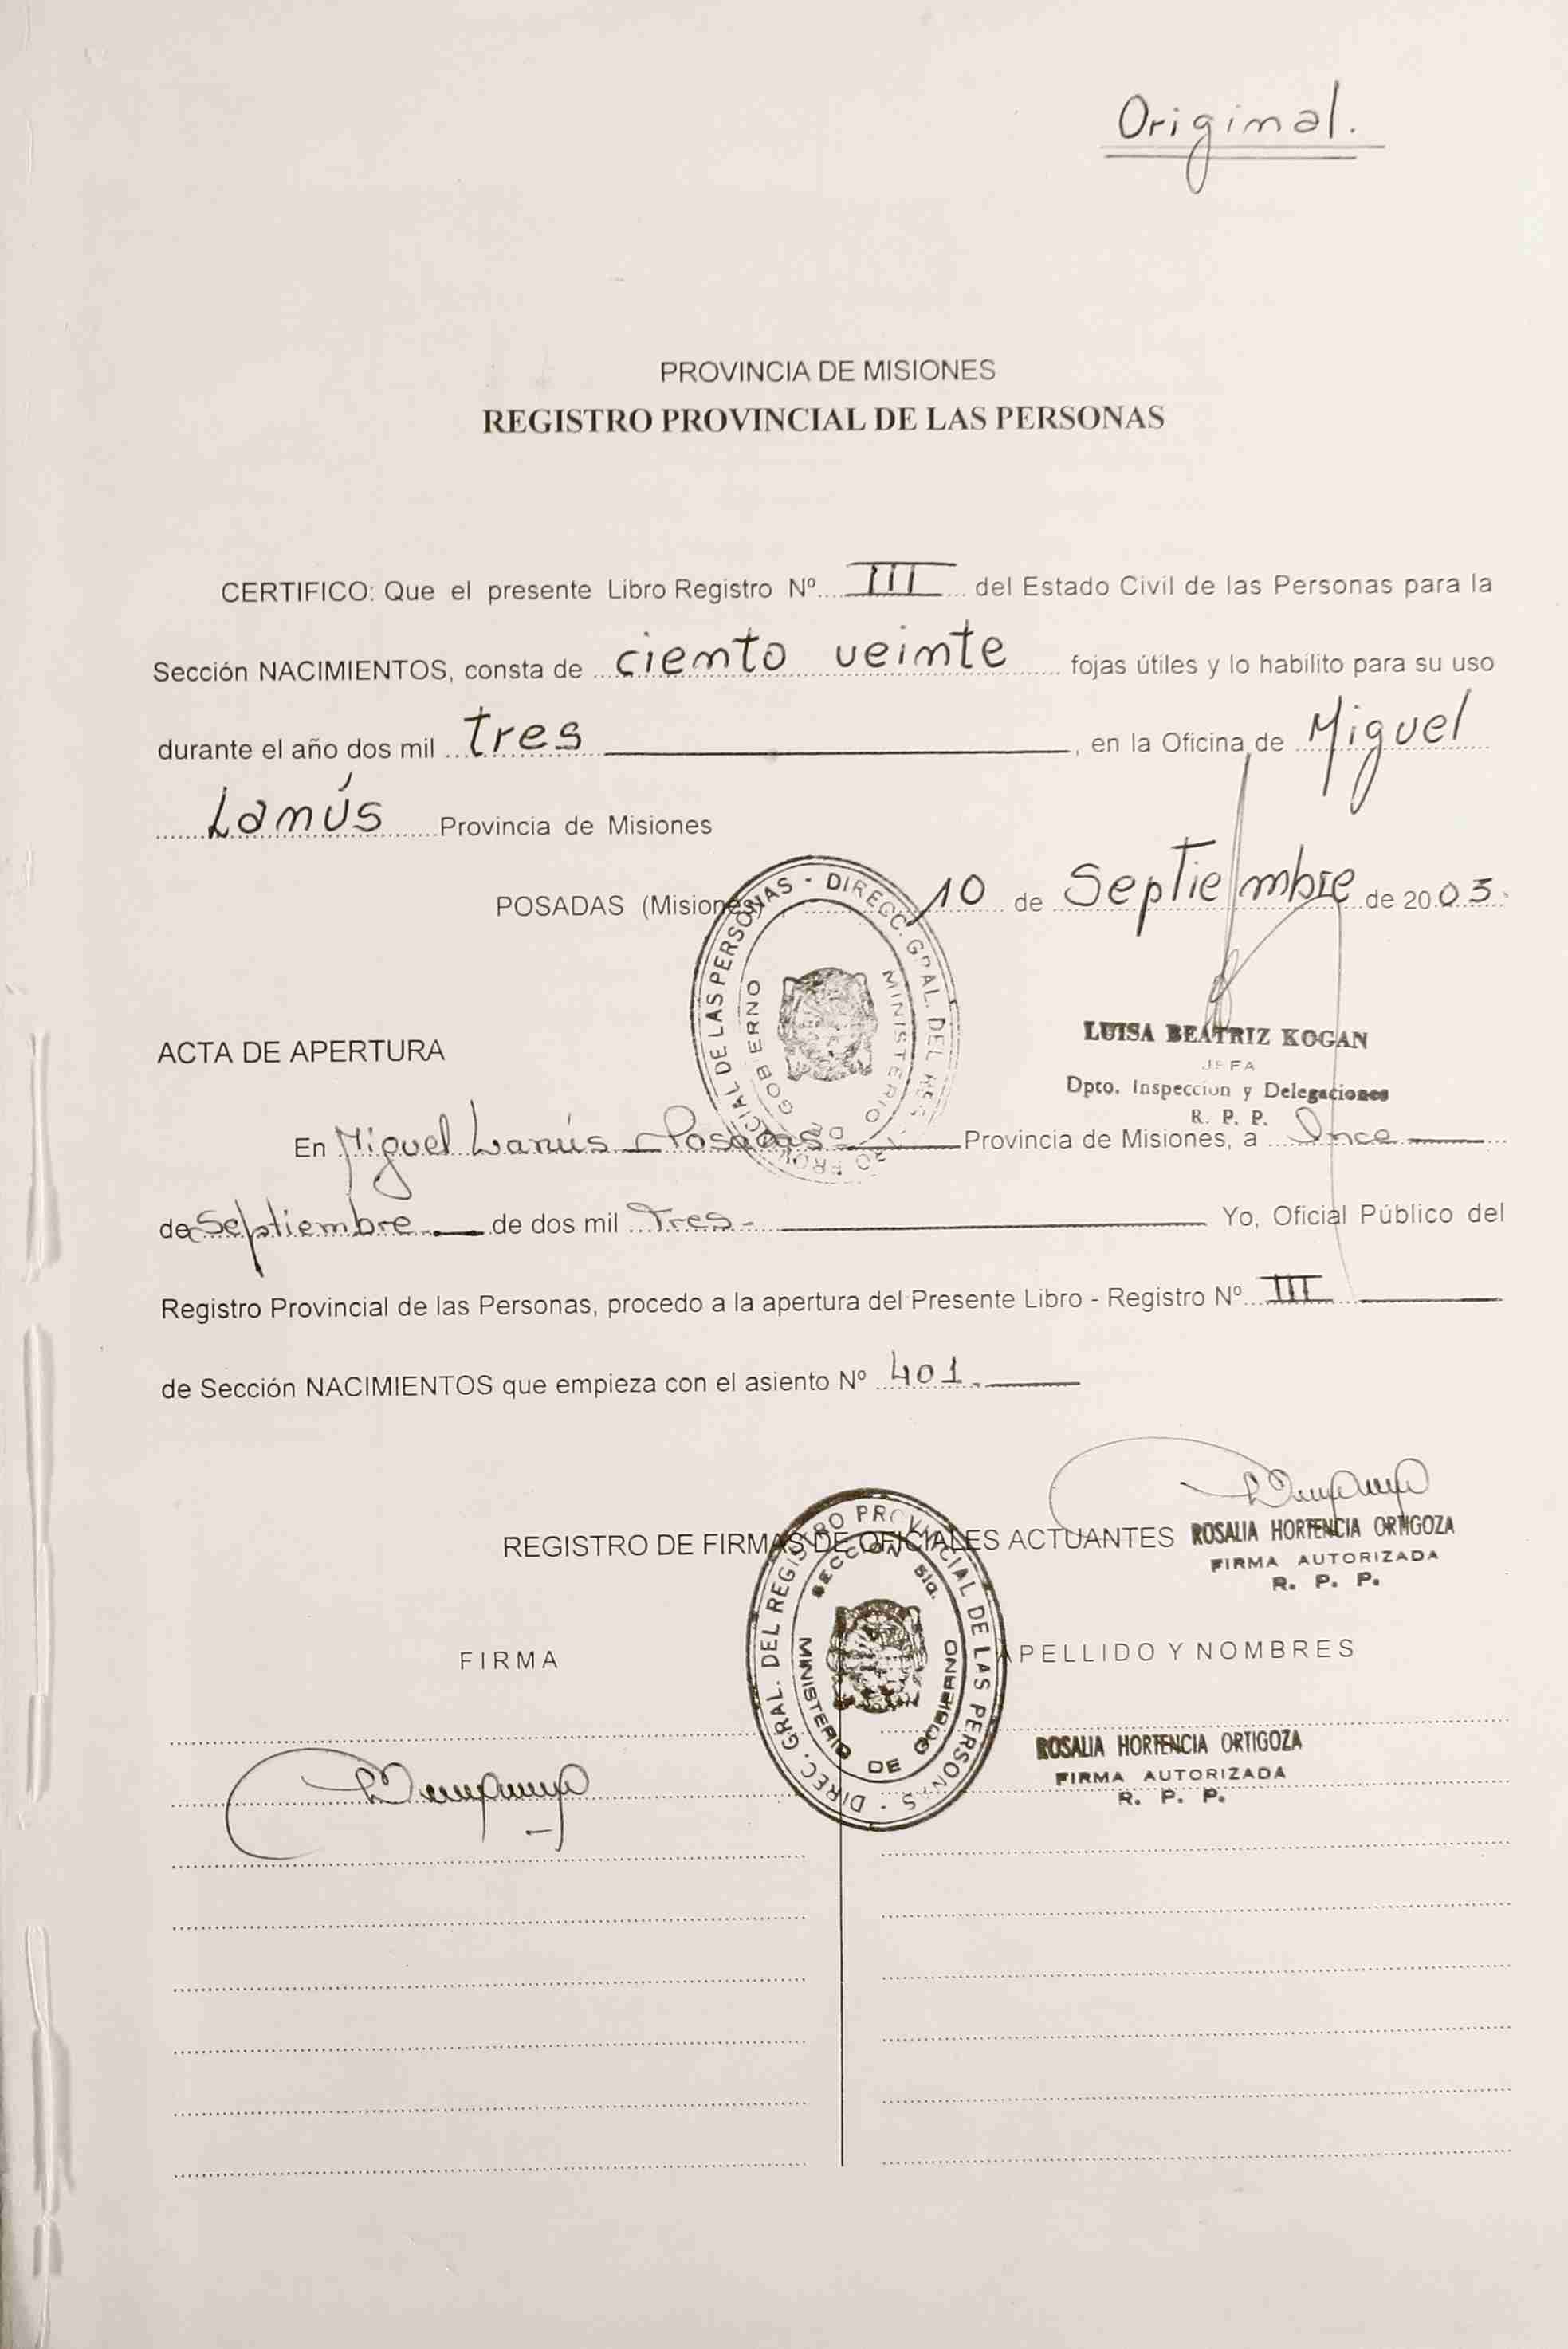 Original.
PROVINCIA DE MISIONES
REGISTRO PROVINCIAL DE LAS PERSONAS
CERTIFICO: Que el presente Libro Registro Nº III del Estado Civil de las Personas para la
Sección NACIMIENTOS, consta de ciento veinte fojas útiles y lo habilito para su uso
durante el año dos mil tres, en la Oficina de Miguel
Lanús Provincia de Misiones
POSADAS (Misiones) 10 de Septiembre de 2003.
DIRECC. GRAL. DEL REG PROVINCIAL DE LAS PERSONAS -
MINISTERIO D GOBIERNO
LUISA BEATRIZ KOGAN
JEFA
Dpto. Inspeccion y Delegaciones
R. P. P.
ACTA DE APERTURA
En Miguel Lanús - Posadas - Provincia de Misiones, a Once
de Septiembre de dos mil Tres - Yo, Oficial Público del
Registro Provincial de las Personas, procedo a la apertura del Presente Libro - Registro Nº III
de Sección NACIMIENTOS que empieza con el asiento Nº 401.
ROSALIA HORTENCIA ORTIGOZA
FIRMA AUTORIZADA
R. P. P.
REGISTRO DE FIRMAS DE OFICIALES ACTUANTES
DIREC. GRAL. DEL REGISTRO PROVINCIAL DE LAS PERSONAS -
SECCION 51a.
MINISTERIO DE GOBIERNO
FIRMA
APELLIDO Y NOMBRES
ROSALIA HORTENCIA ORTIGOZA
FIRMA AUTORIZADA
R. P. P.